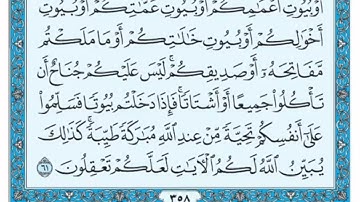 أَوْ بُيُوتِ أَعْمَٰمِكُمْ أَوْ بُيُوتِ عَمَّٰتِكُمْ أَوْ بُيُوتِ
أَخْوَٰلِكُمْ أَوْ بُيُوتِ خَٰلَٰتِكُمْ أَوْ مَا مَلَكْتُم
مَّفَاتِحَهُۥٓ أَوْ صَدِيقِكُمْ ۚ لَيْسَ عَلَيْكُمْ جُنَاحٌ أَن
تَأْكُلُوا۟ جَمِيعًا أَوْ أَشْتَاتًا ۚ فَإِذَا دَخَلْتُم بُيُوتًا فَسَلِّمُوا۟
عَلَىٰٓ أَنفُسِكُمْ تَحِيَّةً مِّنْ عِندِ ٱللَّهِ مُبَٰرَكَةً طَيِّبَةً ۚ كَذَٰلِكَ
يُبَيِّنُ ٱللَّهُ لَكُمُ ٱلْءَايَٰتِ لَعَلَّكُمْ تَعْقِلُونَ ٦١
٣٥٨